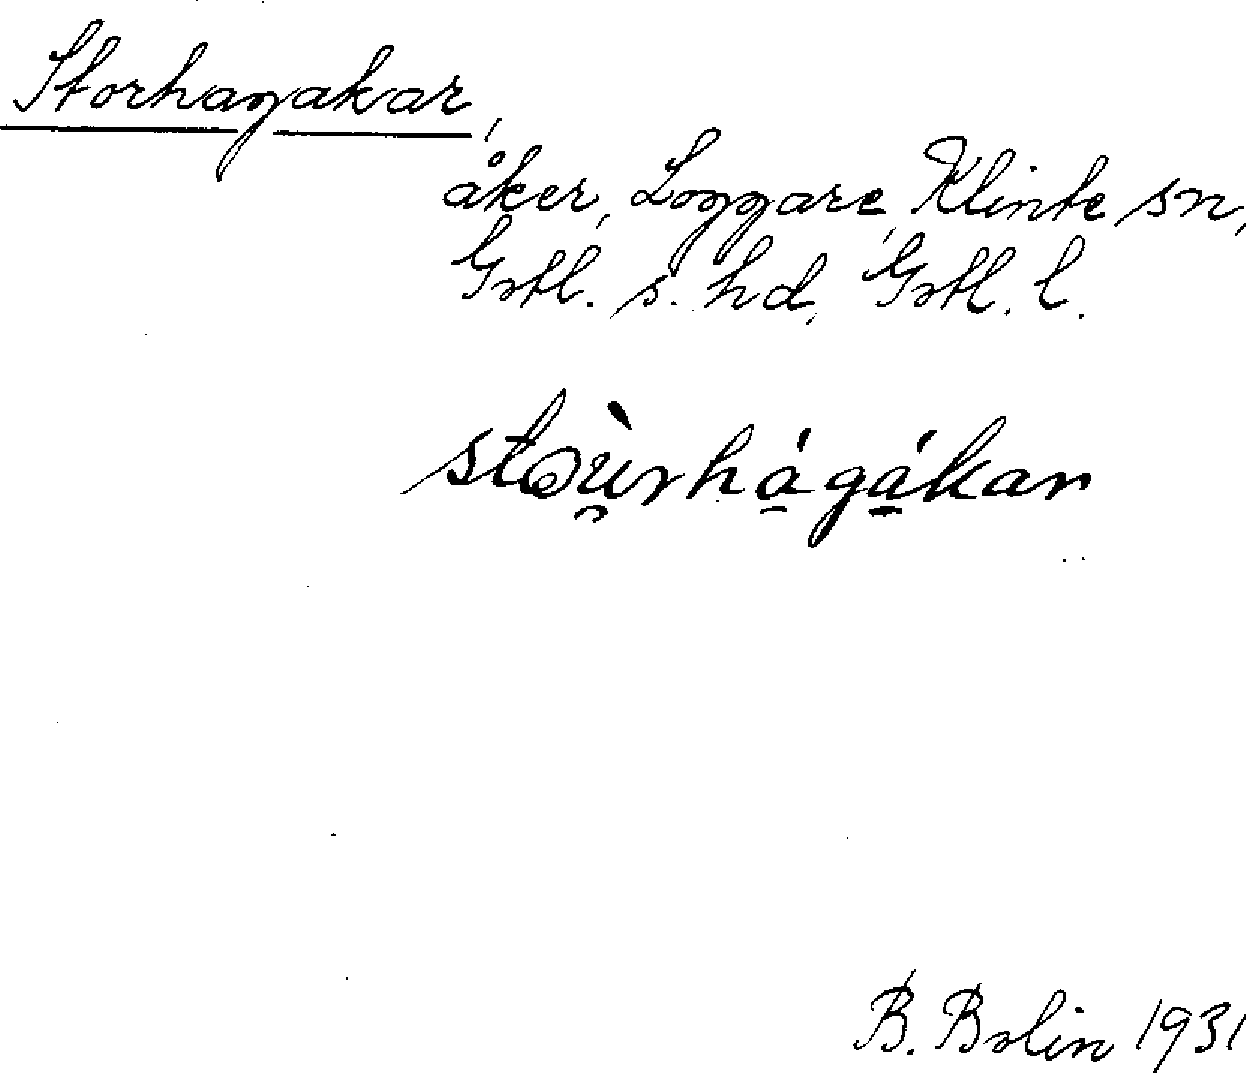 Storhagakar,
åker, Loggare, Klinte sn,
Gotl. s. hd, Gotl. l.
stoù̯rhá̱gá̱kar
B. Bolin 1931